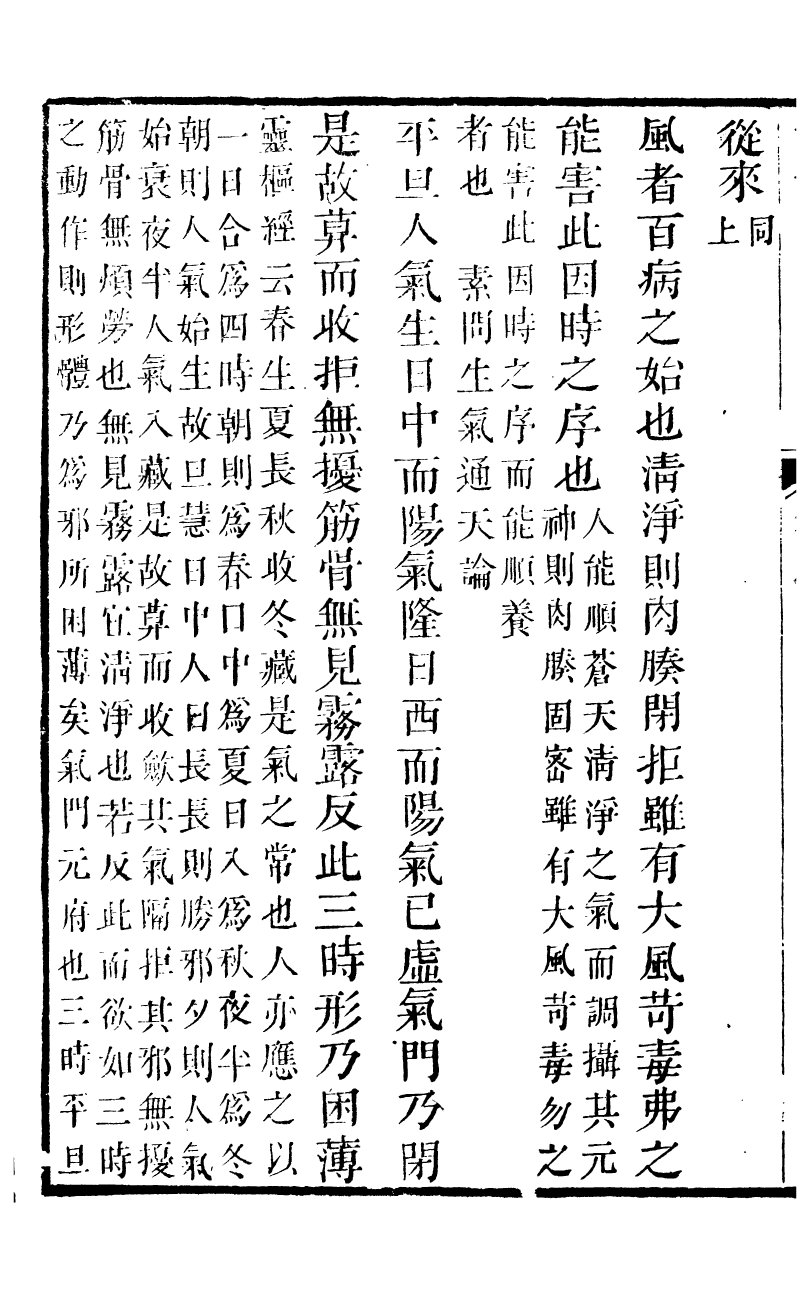 從來同上
風者百病之始也淸淨則肉腠閉拒雖有大風苛毒弗之
能害此因時之序也人能順蒼天淸淨之氣而調攝其元
神則肉腠固密雖有大風苛毒勿之
能害此因時之序而能順養
者也　素問生氣通天論
平旦人氣生日中而陽氣隆日西而陽氣已虛氣門乃閉
是故暮而收拒無擾筋骨無見霧露反此三時形乃困薄
靈樞經云春生夏長秋收冬藏是氣之常也人亦應之以
一日合爲四時朝則爲春日中爲夏日入爲秋夜半爲冬
朝則人氣始生故旦慧日中人日長長則勝邪夕則人氣
始衰夜半人氣入藏是故暮而收歛其氣隔拒其邪無擾
筋骨無煩勞也無見霧露宜淸淨也若反此而欲如三時
之動作則形體乃爲邪所困薄矣氣門元府也三時平旦